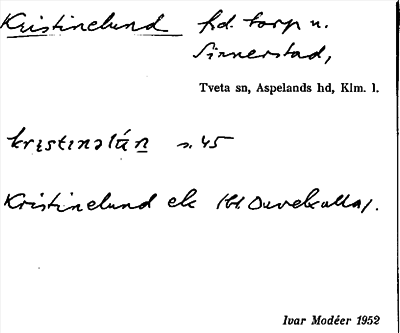 Kristinelund fd. torp u.
Sinnerstad,
Tveta sn, Aspelands hd, Klm. l.
kristinəlún s. 45
Kristinelund ek (bl Duvekulla).
Ivar Modéer 1952